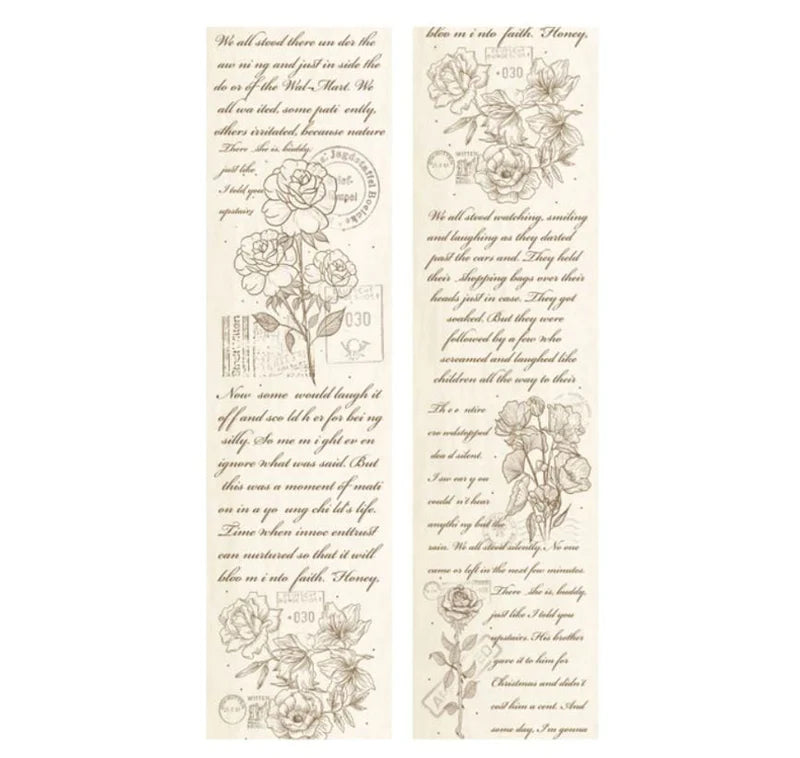 We all stood there un der the
aw ni ng and just in side the
do or of the Wal-Mart. We
all wa ited, some pati ently,
others irritated, because nature
There she is, buddy,
just like
I told you
upstairs
Jagdstaffel Boelcke
Brief-
stempel
030
Now some would laugh it
off and sco ld h er for bei ng
silly. So me m i ght ev en
ignore what was said. But
this was a moment of mati
on in a yo ung chi ld's life.
Time when innoc enttrust
can nurtured so that it will
bloo m i nto faith. "Honey,
030
WITTEN
bloo m i nto faith. "Honey,
030
WITTEN
We all stood watching, smiling
and laughing as they darted
past the cars and. They held
their shopping bags over their
heads just in case. They got
soaked. But they were
followed by a few who
screamed and laughed like
children all the way to their
Th e e ntire
cro wdstopped
dea d silent.
I sw ear y ou
could n't hear
anythi ng but the
rain. We all stood silently. No one
came or left in the next few minutes.
There she is, buddy,
just like I told you
upstairs. His brother
gave it to him for
Christmas and didn't
cost him a cent. And
some day, I'm gonna